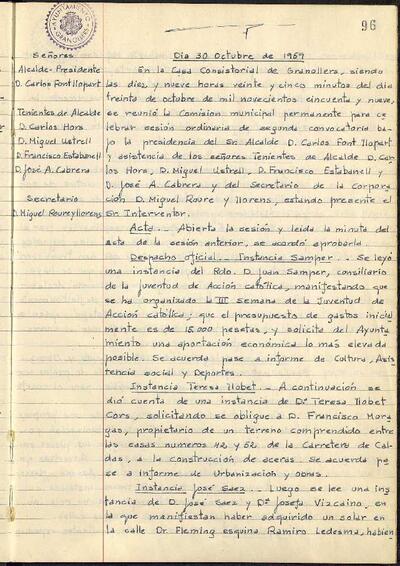 AYUNTAMIENTO
GRANOLLERS
96
Señores
Alcalde-Presidente
D. Carlos Font Llopart
Tenientes de Alcalde
D. Carlos Hors
D. Miguel Ustrell
D. Francisco Estabanell
D. José A. Cabrera
Secretario
D. Miguel Roure y Llorens
Dia 30 Octubre de 1959
En la Casa Consistorial de Granollers, siendo
las diez y nueve horas veinte y cinco minutos del dia
treinta de octubre de mil novecientos cincuenta y nueve,
se reunió la Comision municipal permanente para ce
lebrar sesión ordinaria de segunda convocatoria ba-
jo la presidencia del Sr. Alcalde D. Carlos Font Llopart
y asistencia de los señores Tenientes de Alcalde D. Car
los Hors, D. Miguel Ustrell, D. Francisco Estabanell y
D. José A. Cabrera y del Secretario de la Corpora
ción D. Miguel Roure y Llorens, estando presente el
Sr. Interventor.
Acta.- Abierta la sesión y leida la minuta del
acta de la sesión anterior, se acordó aprobarla.
Despacho oficial.- Instancia Samper.- Se leyó
una instancia del Rdo. D. Juan Samper, consiliario
de la juventud de Acción católica, manifestando que
se ha organizado la III Semana de la Juventud de
Acción católica; que el presupuesto de gastos inicial
mente es de 15.000 pesetas, y solicita del Ayunta
miento una aportación económica lo mas elevada
posible. Se acuerda pase a informe de Cultura, Asis
tencia social y Deportes.
Instancia Teresa Llobet.- A continuación se
dió cuenta de una instancia de Dª Teresa Llobet
Cors, solicitando se obligue a D. Francisco Mora
gas, propietario de un terreno comprendido entre
las casas numeros 42 y 52 de la Carretera de Cal-
das, a la construcción de aceras. Se acuerda pa
se a informe de Urbanización y obras.
Instancia José Saez.- Luego se lee una ins
tancia de D. José Saez y Dª Josefa Vizcaino, en
la que manifiestan haber adquirido un solar en
la calle Dr. Fleming esquina Ramiro Ledesma, habien